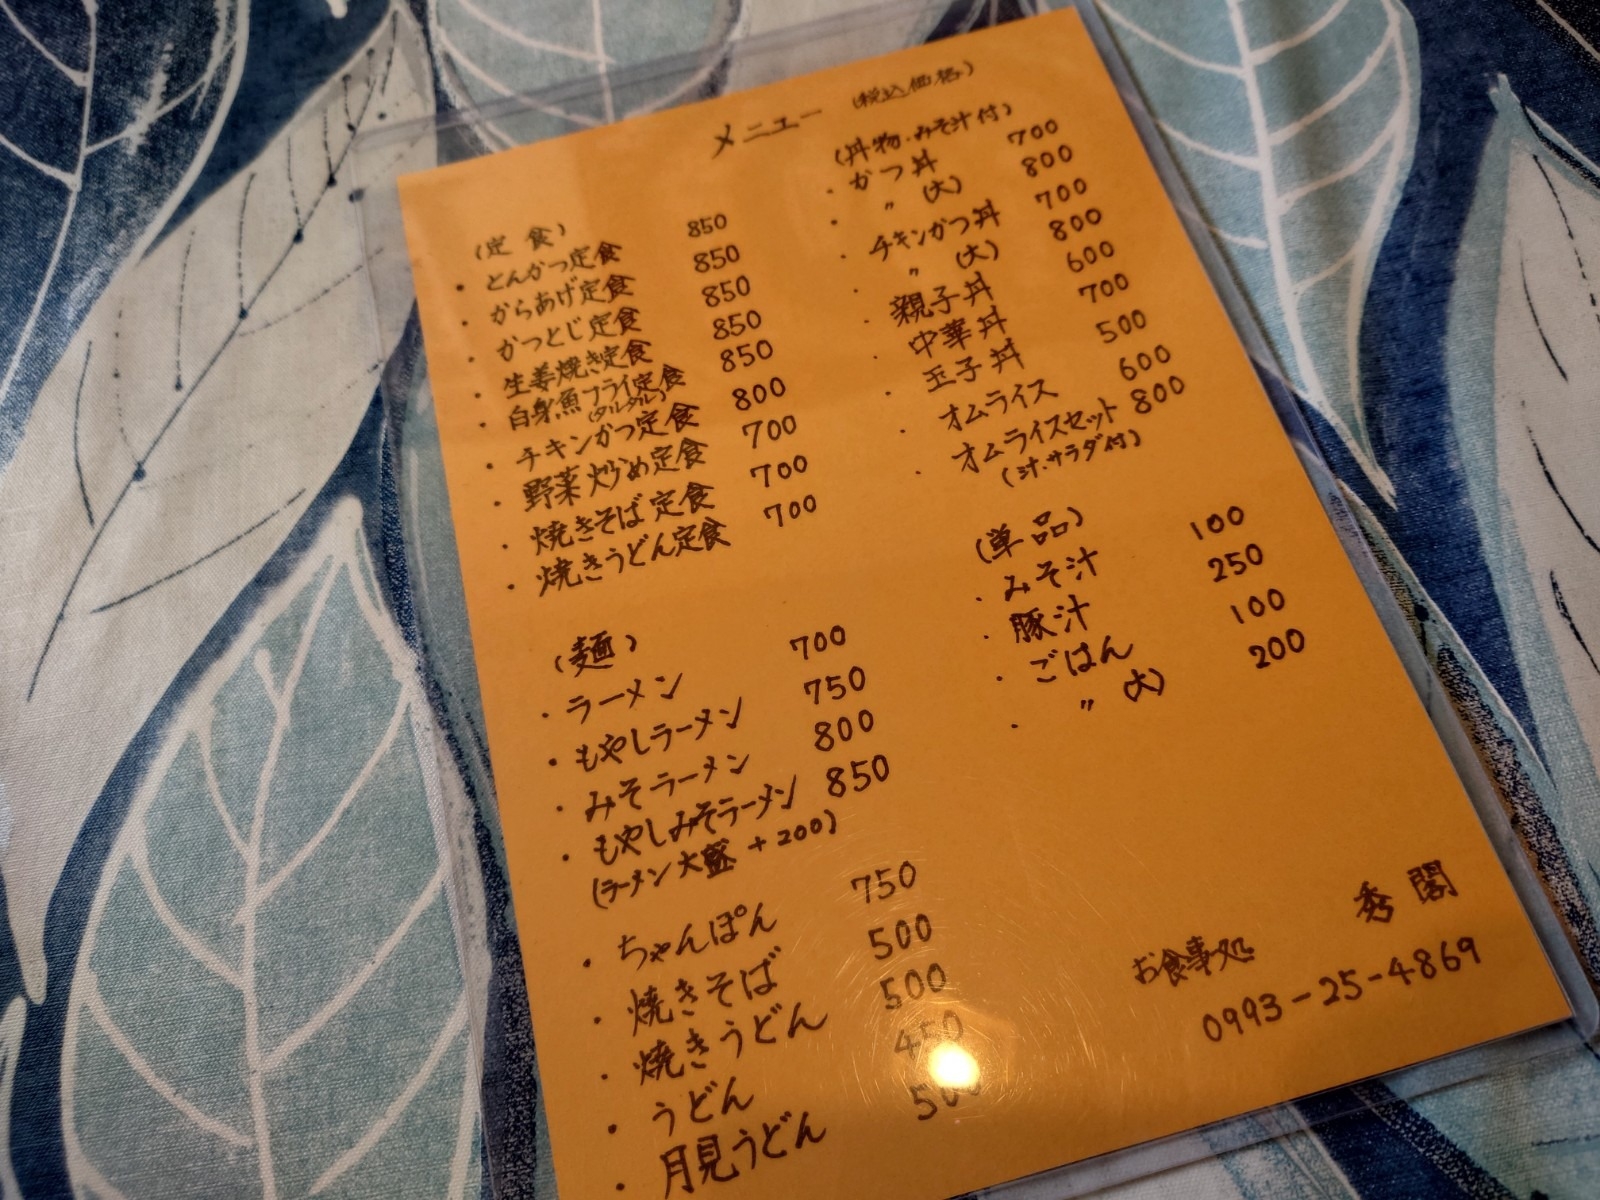 メニュー (税込価格)
(定食)
・とんかつ定食 850
・からあげ定食 850
・かつとじ定食 850
・生姜焼き定食 850
・白身魚フライ定食 850
(タルタル)
・チキンかつ定食 800
・野菜炒め定食 700
・焼きそば定食 700
・焼きうどん定食 700
(麺)
・ラーメン 700
・もやしラーメン 750
・みそラーメン 800
・もやしみそラーメン 850
(ラーメン大盛 +200)
・ちゃんぽん 750
・焼きそば 500
・焼きうどん 500
・うどん 450
・月見うどん 500
(丼物・みそ汁付)
・かつ丼 700
・〃 (大) 800
・チキンかつ丼 700
・〃 (大) 800
・親子丼 600
・中華丼 700
・玉子丼 500
・オムライス 600
・オムライスセット 800
(汁.サラダ付)
(単品)
・みそ汁 100
・豚汁 250
・ごはん 100
・〃 (大) 200
お食事処 秀閣
0993-25-4869